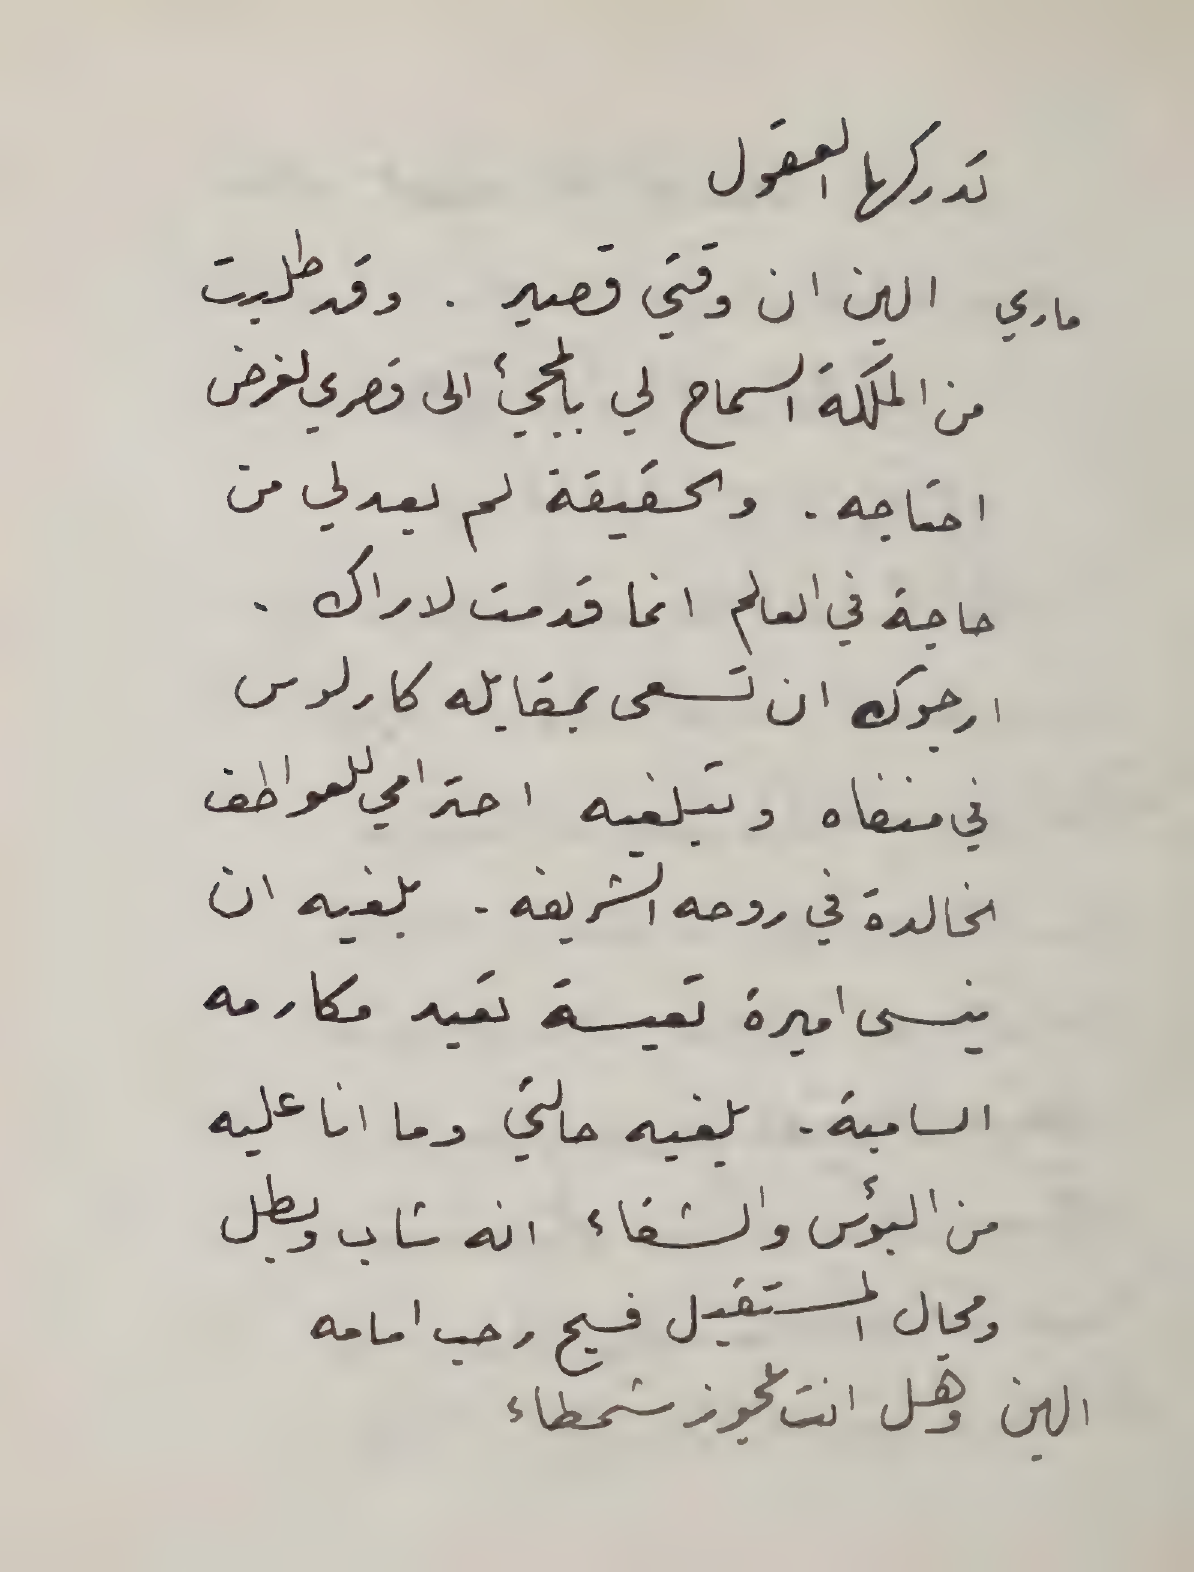 تدركها العقول
ماري الين ان وقتي قصير . وقد طلبت
من الملكة السماح لي بالمجيئ الى قصري لغرض
احتاجه . والحقيقة لم يعد لي من
حاجة في العالم انما قدمت لاراك .
ارجوك ان تسعى بمقابله كارلوس
في منفاه وتبلغيه احترامي للعواطف
الخالدة في روحه الشريفه . بلغيه ان
ينسى اميرة تعيسة تقيد مكارمه
السامية . بلغيه حالتي وما انا عليه
من البؤس والشقاء انه شاب وبطل
ومجال المستقبل فسيح رحب امامه
الين وهل انت عجوز شمطاء